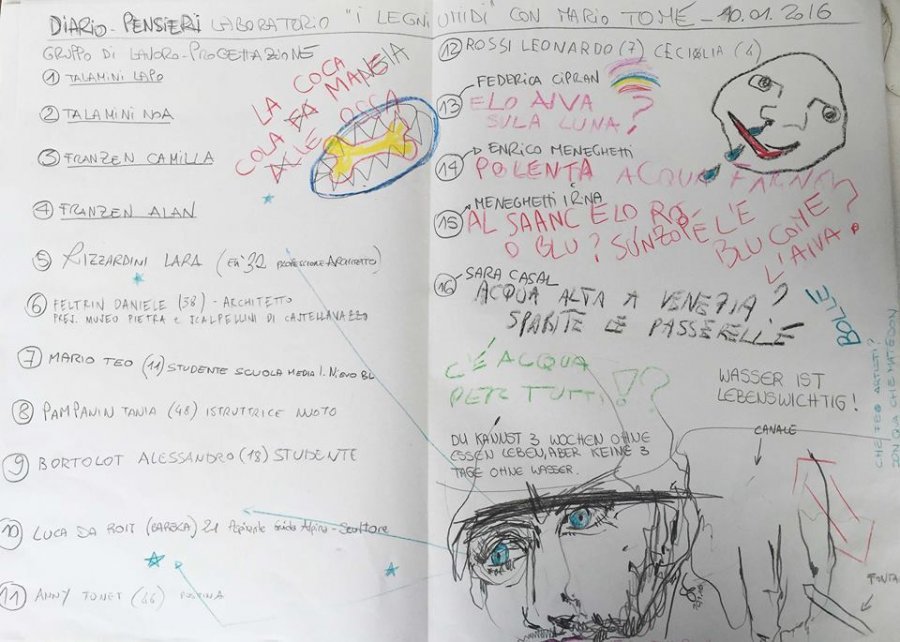 DIARIO - PENSIERI LABORATORIO "I LEGNI UMIDI" CON MARIO TOMÈ - 10.01.2016
GRUPPO DI LAVORO - PROGETTAZIONE
1 TALAMINI LAPO
2 TALAMINI NOA
3 FRANZEN CAMILLA
4 FRANZEN ALAN
5 RIZZARDINI LARA (ETÀ 32 PROFESSIONE ARCHITETTO)
6 FELTRIN DANIELE (38) - ARCHITETTO
PRES. MUSEO PIETRA E SCALPELLINI DI CASTELLAVAZZO
7 MARIO TEO (11) STUDENTE SCUOLA MEDIA I. NIEVO BL
8 PAMPANIN TANIA (48) ISTRUTTRICE NUOTO
9 BORTOLOT ALESSANDRO (18) STUDENTE
10 LUCA DA ROIT (BARBCA) 21 Aspirante Guida Alpina - Scultore
11 ANNY TONET (66)
LA COCA
COLA FA MANGIA
LE OSSA
12 ROSSI LEONARDO (7) CECIGLIA (4)
FEDERICA CIPRAN
13 ELO AIVA
SULA LUNA?
D ENRICO MENEGHETTI
14 POLENTA ACQUA FARNA
MENEGHETTI IRNA
15 AL SAANC ELO RO
O BLU? SUNZOPÉ L'E
BLU COME
L'AIVA?
SARA CASAL
16 ACQUA ALTA A VENEZIA?
SPARITE LE PASSERELLE
BOLLE
C'É ACQUA
PER TUTTI!?
WASSER IST
LEBENSWICHTIG!
DU KANNST 3 WOCHEN OHNE
ESSEN LEBEN, ABER KEINE 3
TAGE OHNE WASSER.
CANALE
CHE TEO ARTISTI?